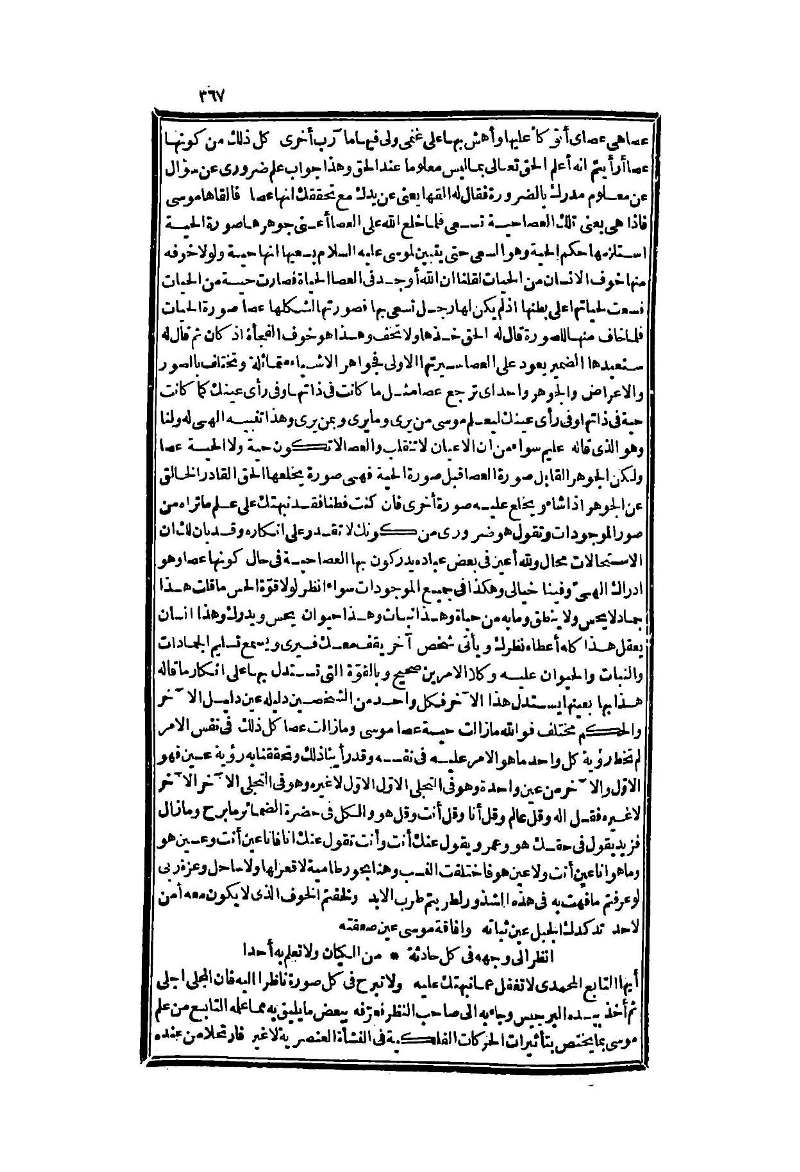 ٣٦٧
عصاهى عصاى أتوكأ عليها وأهش بها على غنمى ولى فيها ما آرب أخرى كل ذلك من كونها
عصا أرأيتم انه أعلم الحق تعالى بما ليس معلوما عند الحق وهذا جواب علم ضرورى عن سؤال
عن معلوم مدرك بالضرورة فقال له القها يعنى عن يدك مع تحققك انها عصا فالقاها موسى
فاذا هى يعنى تلك العصا حية تسعى فلما خلع الله على العصا أعنى جوهرها صورة الحية
استلزمها حكم الحية وهو السعى حتى يتبين لموسى عليه السلام بسعيها انها حية ولولا خوفه
منها خوف الانسان من الحيات لقلنا ان الله أوجد فى العصا الحياة فصارت حية من الحيات
فسعت لحياتها على بطنها اذ لم يكن لها رجل تسعى بها فصورتها لشكلها عصا صورة الحيات
فلما خاف منها للصورة قال له الحق خذها ولا تخف وهذا هو خوف الفجأة اذ كان ثم قال له
سنعيدها الضمير يعود على العصا سيرتها الاولى فجواهر الاشياء متماثلة وتختلف بالصور
والاعراض والجوهر واحد اى ترجع عصا مثل ما كانت فى ذاتها وفى رأى عينك كما كانت
حية فى ذاتها وفى رأى عينك ليعلم موسى من يرى وما يرى وبمن يرى وهذا تنبيه الهى له ولنا
وهو الذى قاله عليم سواء من ان الاعيان لا تنقلب والعصا لا تكون حية ولا الحية عصا
ولكن الجوهر القابل صورة العصا قبل صورة الحية فهى صورة يخلعها الحق القادر الخالق
عن الجوهر اذا شاء ويخلع عليه صورة أخرى فان كنت فطنا فقد نبهتك على علم ما تراه من
صور الموجودات وتقول هو ضرورى من كونك لا تقدر على انكاره وقد بان لك ان
الاستحالات محال ولله أعين فى بعض عباده يدركون بها العصا حية فى حال كونها عصا وهو
ادراك الهى وفينا خيالى وهكذا فى جميع الموجودات سواء انظر لولا قوة الحس ما قلت هذا
جماد لا يحس ولا ينطق وما به من حياة وهذا نبات وهذا حيوان يحس ويدرك وهذا انسان
يعقل هذا كله أعطاه نظرك ويأتى شخص آخر يقف معك فيرى ويسمع تسليم الجمادات
والنبات والحيوان عليه وكلا الامرين صحيح وبالقوة التى تستدل بها على انكار ما قاله
هذا بها بعينها يستدل هذا الآخر فكل واحد من الشخصين دليله عين دليل الآخر
والحكم مختلف فوالله ما زالت حية عصا موسى وما زالت عصا كل ذلك فى نفس الامر
لم تخط رؤية كل واحد ما هو الامر عليه فى نفسه وقد رأينا ذلك وتحققنا به رؤية عين فهو
الاول والآخر من عين واحدة وهو فى التجلى الاول الاول لا غيره وهو فى التجلى الآخر الآخر
لا غيره فقل اله وقل عالم وقل أنا وقل أنت وقل هو والكل فى حضرة الضمائر ما برح وما زال
فزيد يقول فى حقك هو وعمرو يقول عنك أنت وأنت تقول عنك انا فانا عين أنت وعين هو
وما هو انا عين أنت ولا عين هو فاختلفت النسب وهذا بحور طامية لا قعر لها ولا ساحل وعزة ربى
لو عرفتم ما فهت به فى هذه الشذور لطربتم طرب الابد ولخفتم الخوف الذى لا يكون معه أمن
لاحد تدكدك الجبل عين ثباته وافاقة موسى عين صعقته
انظر الى وجهه فى كل حادثة * من الكيان ولا تعلم به أحدا
أيها التابع المحمدى لا تغفل عما نبهتك عليه ولا تبرح فى كل صورة ناظرا اليه فان المجلى اجلى
ثم أخذ بيده البرجيس وجاء به الى صاحب النظر فعرفه ببعض ما يليق به مما علمه التابع من علم
موسى بما يختص بتأثيرات الحركات الفلكية فى النشأة العنصرية لا غير فارتحلا من عنده